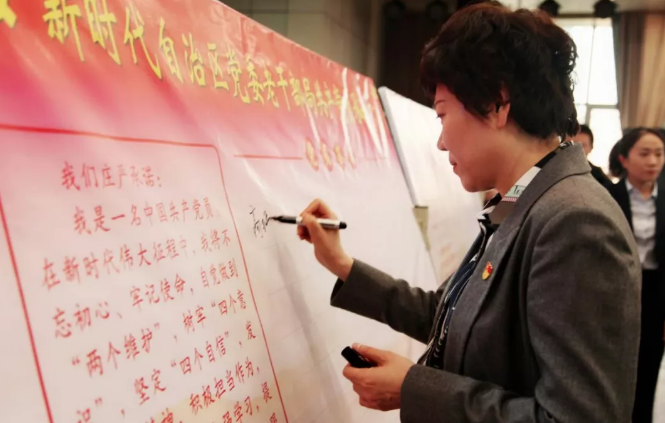 新时代自治区党委老干部局共产党员
我们庄严承诺：
我是一名中国共产党员，
在新时代伟大征程中，我将不
忘初心、牢记使命，自觉做到
“两个维护”，树牢“四个意
识”，坚定“四个自信”，发
积极担当作为，
强学习，